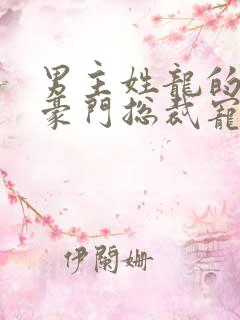 男主姓龍的
豪門総裁寵
伊蘭姍